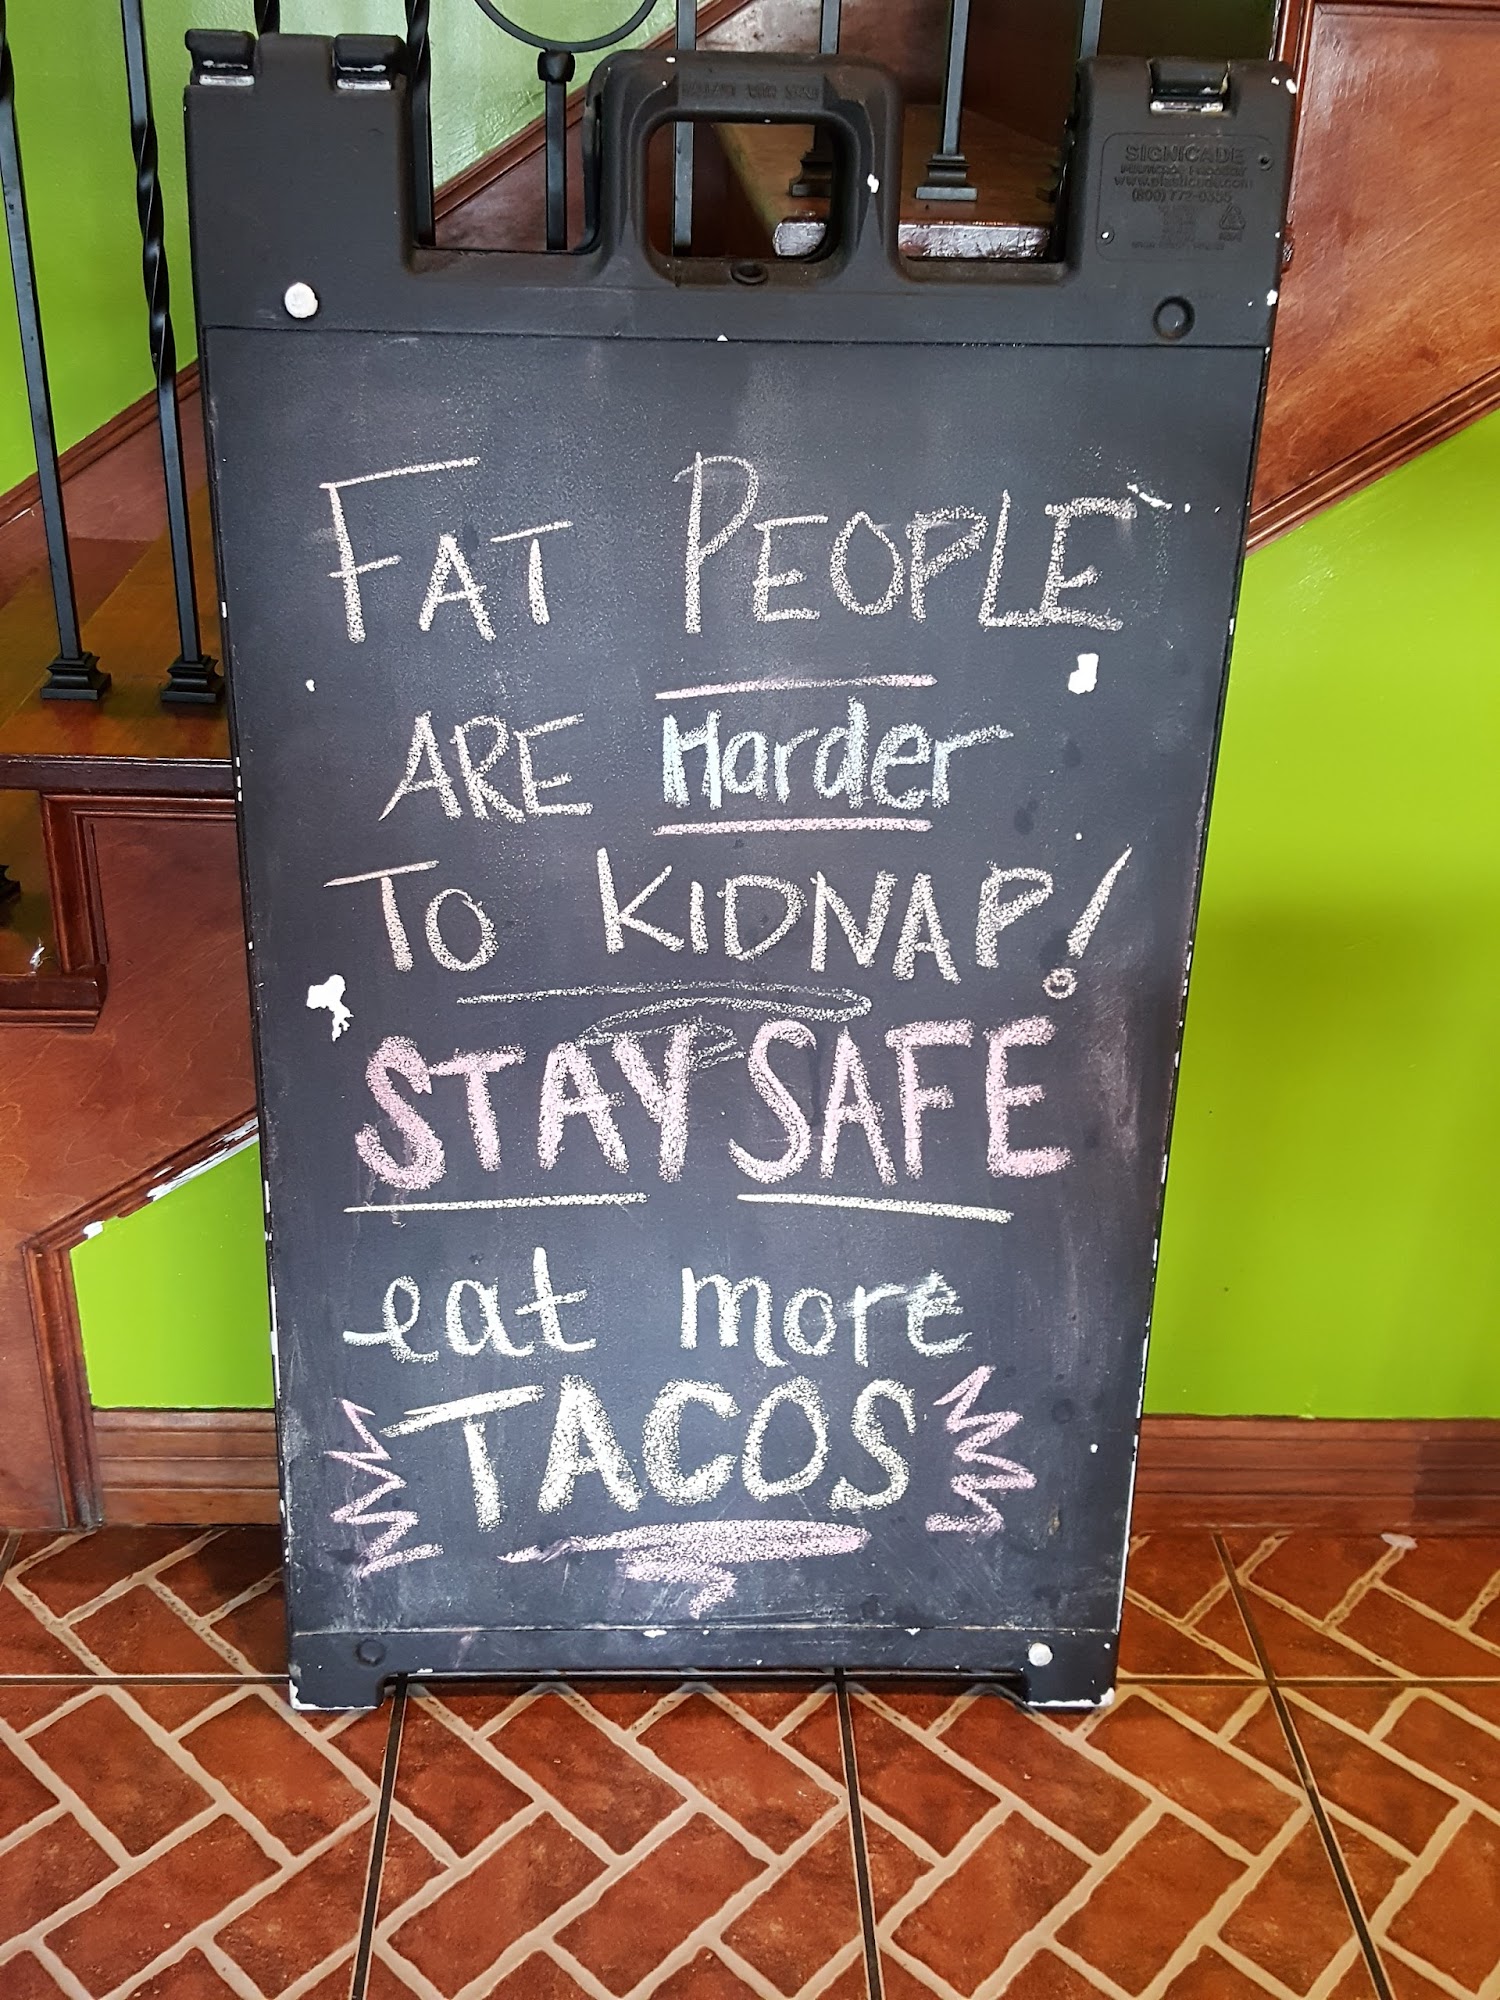 SIGNICADE
(800) 772-0355
FAT PEOPLE
ARE Harder
TO KIDNAP!
STAY SAFE
eat more
TACOS